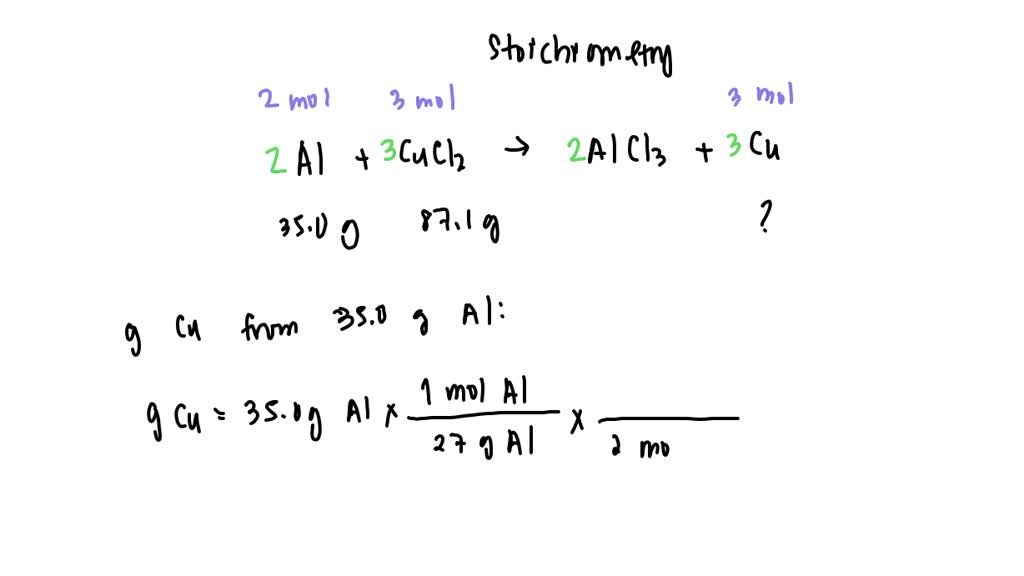 Stoichiometry
2 mol 3 mol 3 mol
2 Al + 3 CuCl2 → 2 AlCl3 + 3 Cu
35.0 g 87.1 g ?
g Cu from 35.0 g Al:
g Cu = 35.0 g Al × 1 mol Al / 27 g Al × / 2 mo